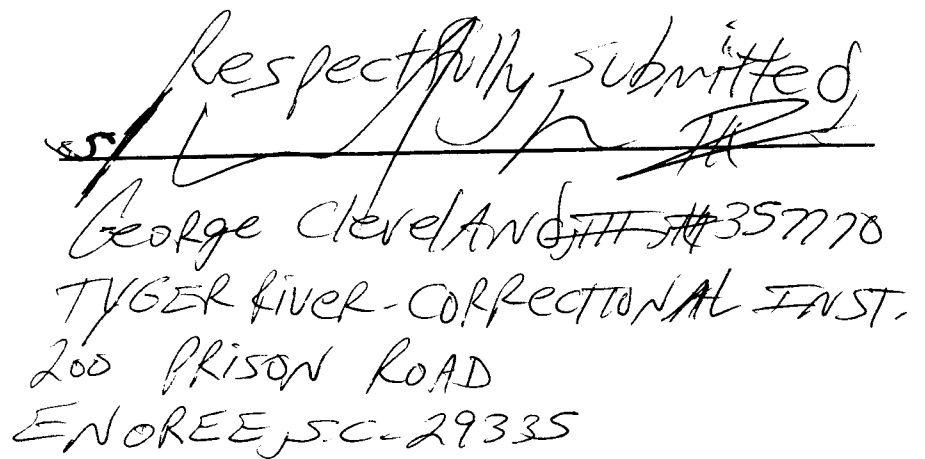 Respectfully submitted,
s/
George ClevelANd, III, #357770
TYGER RiveR-CORRecTIONAL INST.
200 PRISON ROAD
ENOREE, S.C. 29335